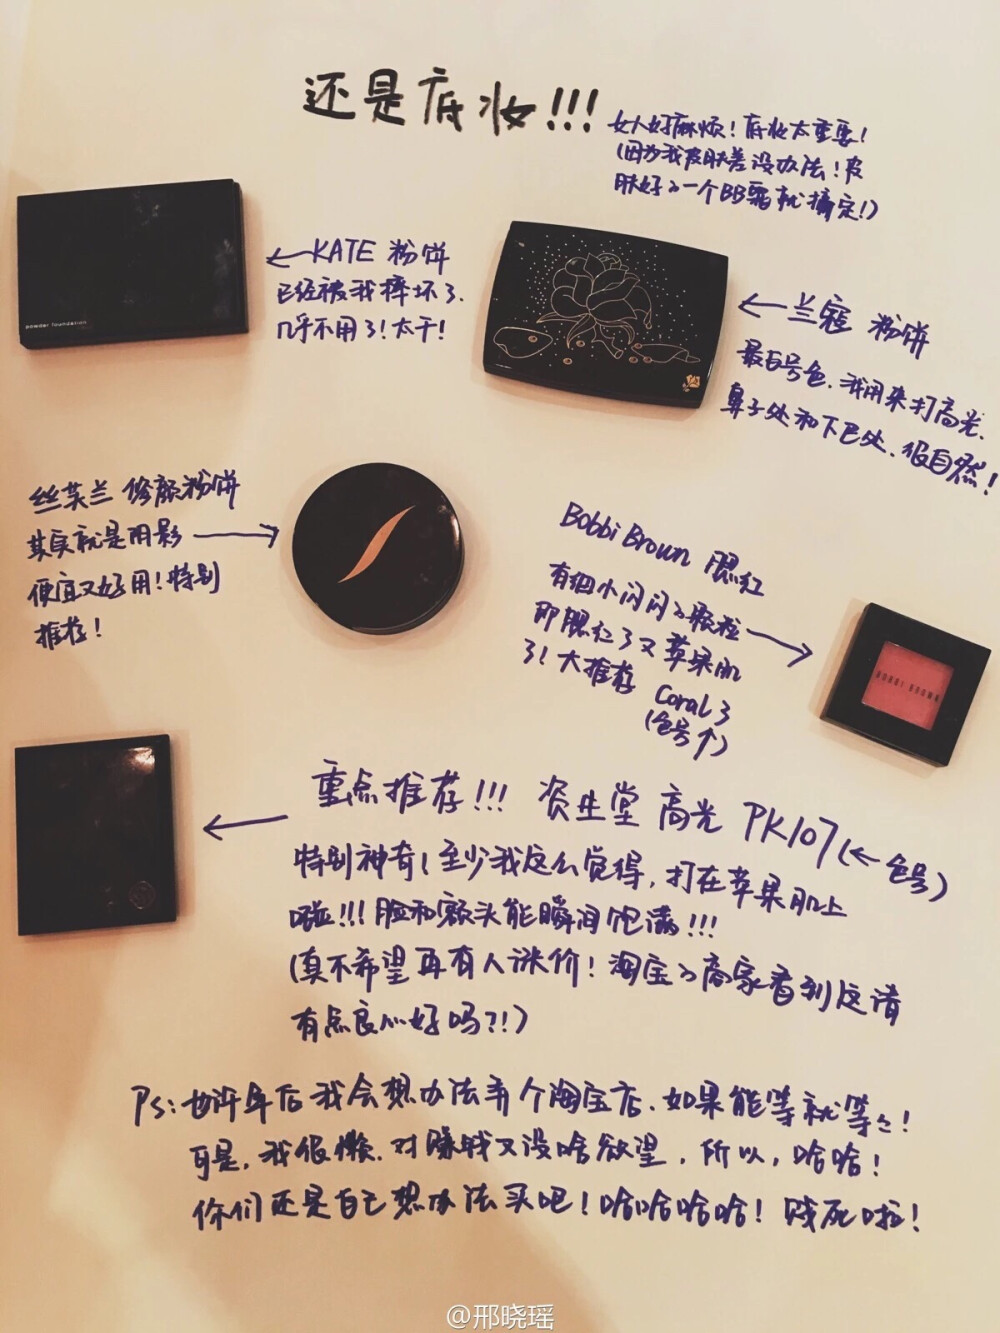 还是底妆!!!
女人好麻烦！底妆太重要！
(因为我皮肤差没办法！皮
肤好的一个BB霜就搞定！)
←KATE 粉饼
已经被我摔坏了.
几乎不用了！太干！
powder foundation
←兰蔻 粉饼
最白号色.我用来打高光.
鼻子处和下巴处.很自然！
丝芙兰 修颜粉饼
其实就是阴影
便宜又好用！特别
推荐！
Bobbi Brown 腮红
有细小闪闪的颗粒
即腮红了又苹果肌
了！大推荐 Coral 3
(色号↑)
BOBBI BROWN
重点推荐!!! 资生堂 高光 PK107(←色号)
特别神奇！至少我这么觉得,打在苹果肌上
啦!!!脸和额头能瞬间饱满!!!
(真不希望再有人涨价！淘宝的商家看到这请
有点良心好吗?!)
Ps:也许年后我会想办法弄个淘宝店.如果能等就等等！
可是,我很懒.对赚钱又没啥欲望,所以,哈哈！
你们还是自己想办法买吧！哈哈哈哈！贱死啦！
@邢晓瑶